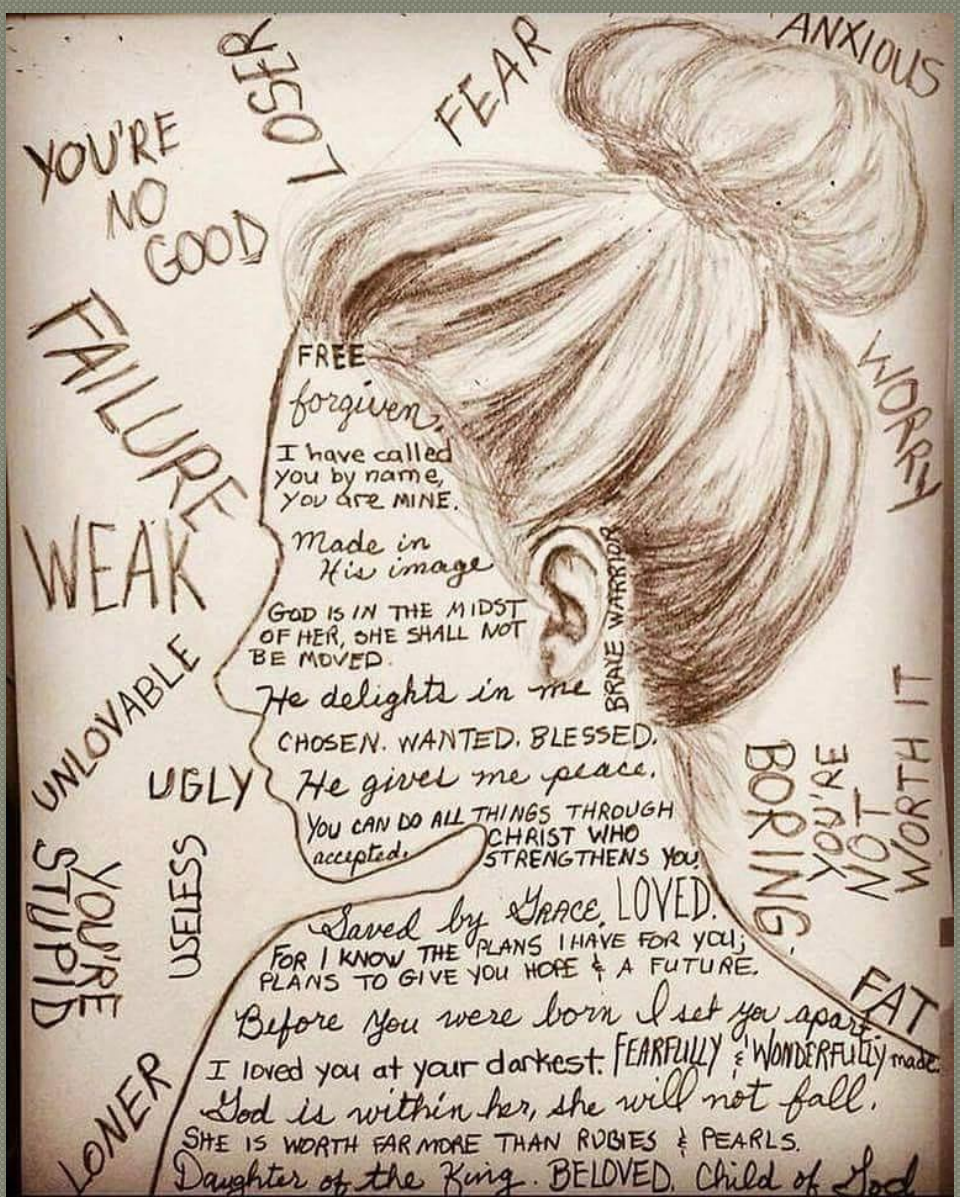 LOSER
FEAR
ANXIOUS
YOU'RE
NO
GOOD
FAILURE
WORRY
WEAK
UNLOVABLE
UGLY
YOU'RE
STUPID
USELESS
LONER
FREE
forgiven.
I have called
you by name,
you are MINE.
Made in
His image
GOD IS IN THE MIDST
OF HER, SHE SHALL NOT
BE MOVED.
BRAVE WARRIOR
He delights in me
CHOSEN. WANTED. BLESSED.
He gives me peace.
YOU CAN DO ALL THINGS THROUGH
CHRIST WHO
STRENGTHENS YOU.
accepted.
Saved by GRACE. LOVED.
FOR I KNOW THE PLANS I HAVE FOR YOU;
PLANS TO GIVE YOU HOPE & A FUTURE.
Before you were born I set you apart.
I loved you at your darkest. FEARFULLY & WONDERFULLY made.
God is within her, she will not fall.
SHE IS WORTH FAR MORE THAN RUBIES & PEARLS.
Daughter of the King. BELOVED. Child of God
BORING
YOU'RE
NOT
WORTH IT
FAT